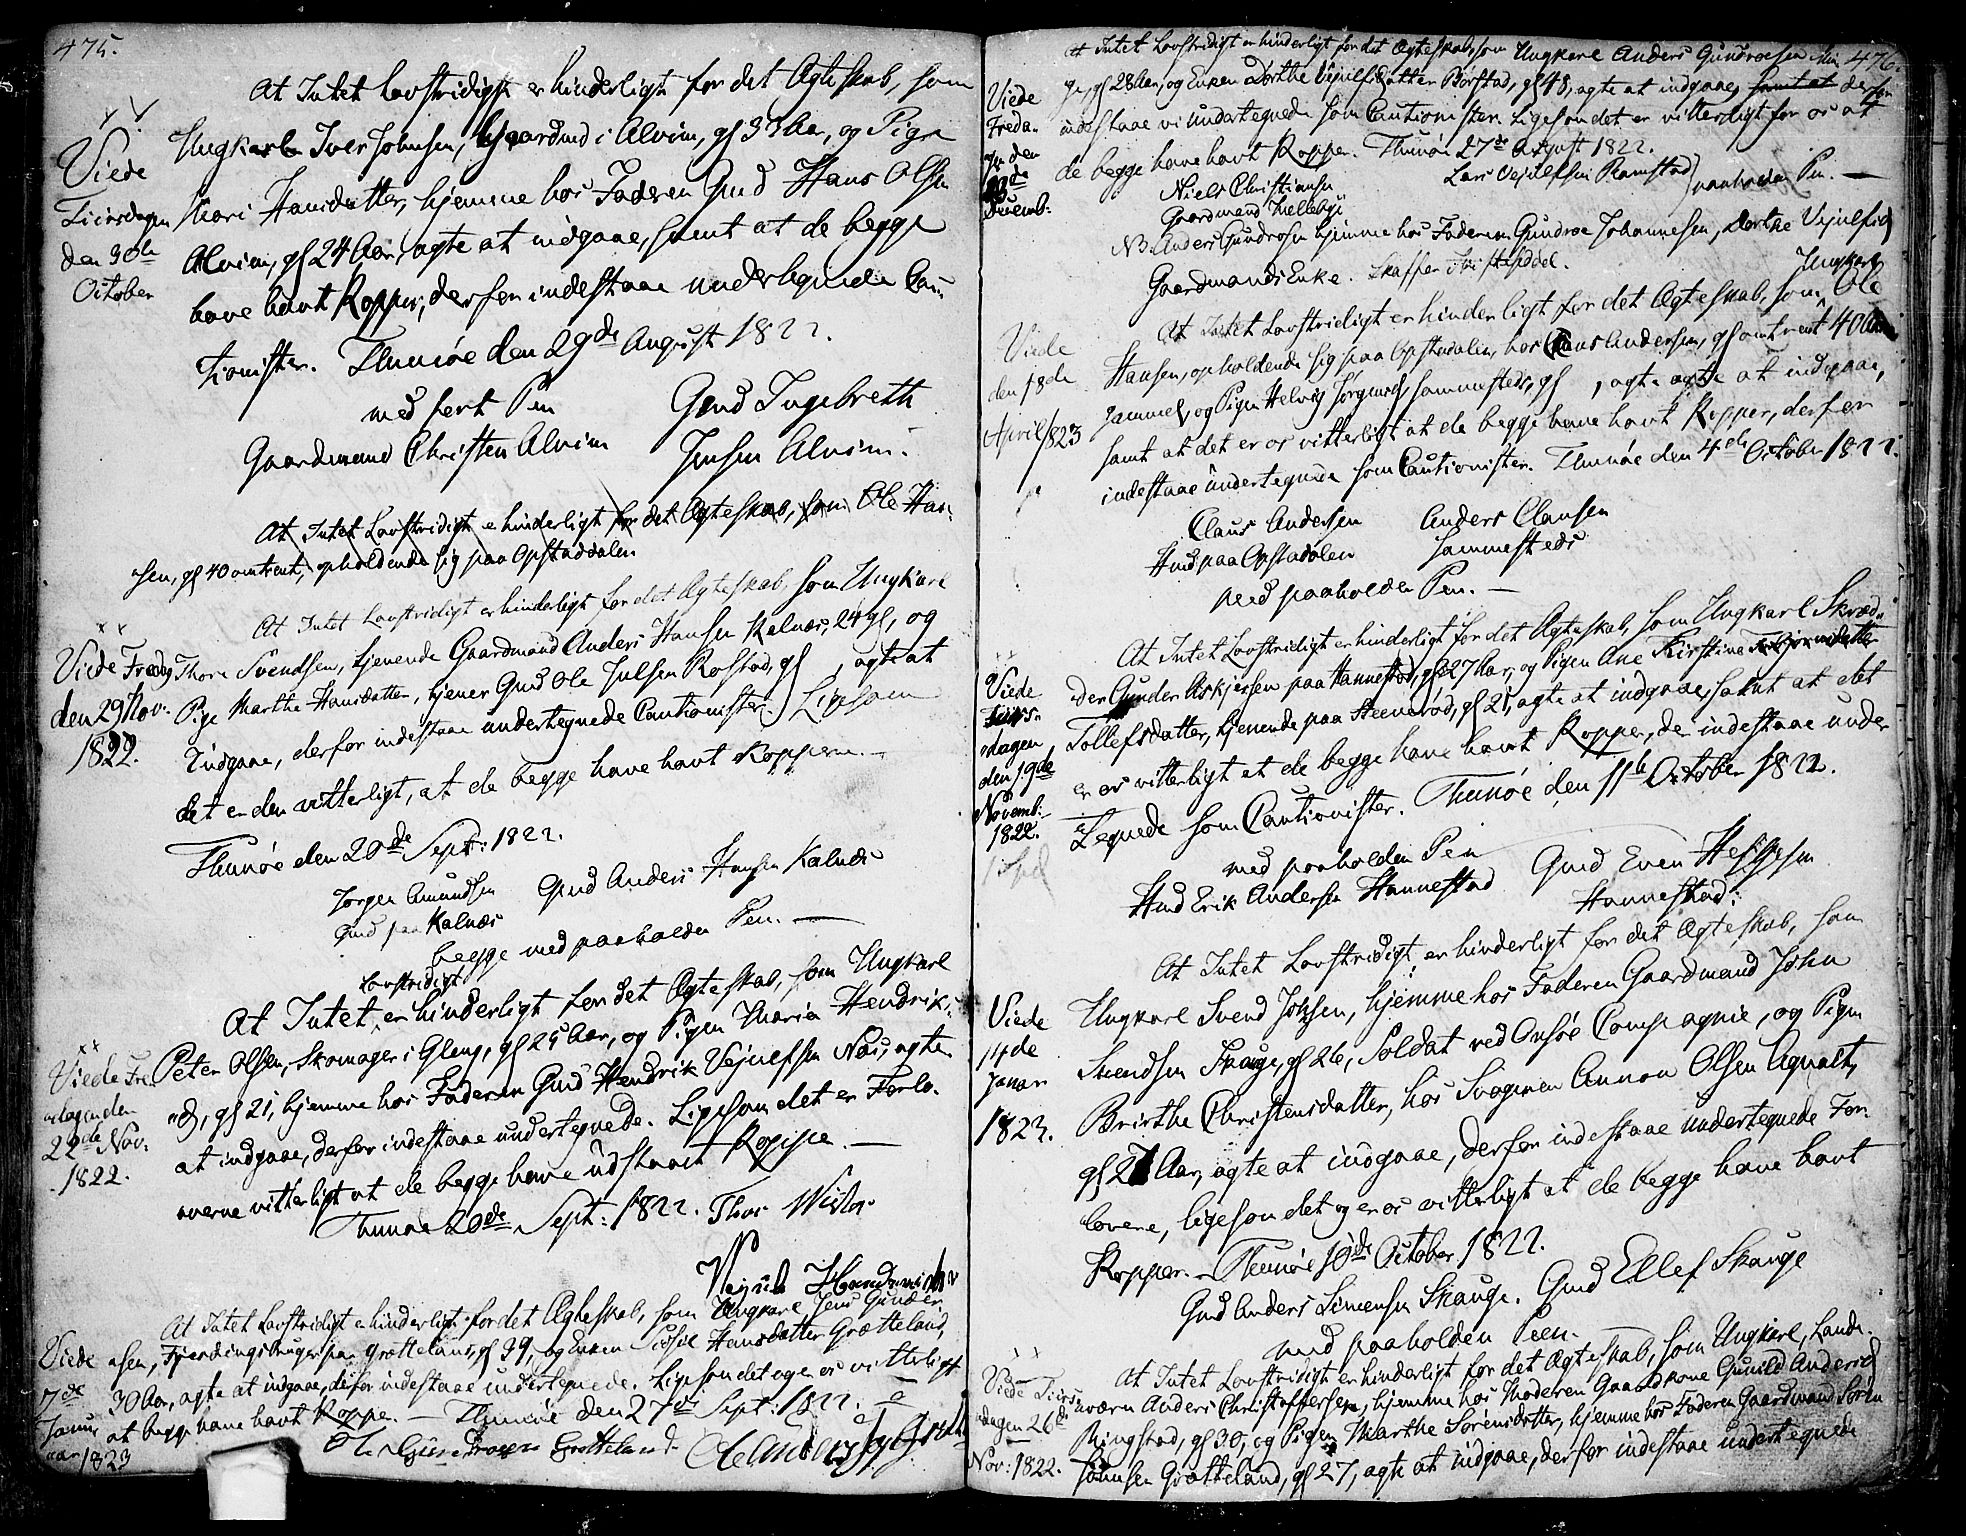 475.
At Intet Lovstridigt er hinderligt for det Ægteskab, som
Ungkarl Iver Johnsen, Gaardmd i Alvim, gl 33 Aar, og Pige
Viede
Tiirsdagen
den 30te
October
Kari Hansdatter, hjemme hos Faderen Gmd Hans Olsen
Alvim, gl 24 Aar, agte at indgaae, samt at de begge
have havt Kopper, derfor indestaae undertegnede Cau-
tionister. Thunøe den 29de August 1822.
med ført Pen
Gaardmand Christen Alvim
Gmd Ingebreth
Jensen Alvim.
At Intet Lovstridigt er hinderligt for det Ægteskab, som Ole Han-
sen, gl 40 omtrent, opholdende sig paa Opstaddalen
At Intet Lovstridigt er hinderligt for det Ægteskab, som Ungkarl
Viede Fredag
den 29 Nov.
1822.
Thore Svendsen, tjenende Gaardmand Anders Hansen Kalnæs, 24 gl, og
Pige Marthe Hansdatter, tjener Gmd Ole Julsen Rostad, gl , agte at
Indgaae, derfor indestaae undertegnede Cautionister. Ligesom
det er dem vitterligt, at de begge have havt Kopperne.
Thunøe den 20de Sept: 1822.
Jørgen Amundsen
Gmd paa Kalnæs
Gmd Anders Hansen Kalnæs
begge med paaholden Pen.
Lovstridigt
At Intet er hinderligt for det Ægteskab, som Ungkarl
Viede Fre-
dagen den
22de Nov.
1822.
Peter Olsen, Skomager i Gleng, gl 25 Aar, og Pigen Maria Hendrik-
sd, gl 21, hjemme hos Faderen Gmd Hendrik Vejulfsen Næs, agte
at indgaae, derfor indestaae undertegnede. Ligesom det er Forlo-
verne vitterligt at de begge have udstaaet Koppe.
Thunøe 20de Sept: 1822. Thor
At Intet Lovstridigt er hinderligt for det Ægteskab, som Ungkarl Jens Gunder-
Viede
7de
Janu-
uar 1823
sen, Fjerdingsbruger paa Grotteland, gl 39, og Enken Sidsel Hansdatter Grotteland,
30 Aar, agte at indgaae, derfor indestaae undertegnede. Ligesom det og er os vitterligt
at begge have havt Koppe. Thunøe den 27de Sept: 1822.
Grotteland
476.
At Intet Lovstridigt er hinderligt for det Ægteskab, som Ungkarl Anders Gundroesen
gl 28 Aar, og Enken Dorthe Vejulfsdatter Borstad, gl 48, agte at indgaae, samt at derfor
Viede
Freda-
gen den
Decemb:
indestaae vi undertegnede som Cautionister. Ligesom det er vitterligt for os at
de begge have havt Kopper. Thunøe 27de August 1822.
Niels Christiansen
Gaardmand
Lars Vejulfsen Ramstad
paaholden Pen.
NB. Anders Gundrosen hjemme hos Faderen Gundroe Johannesen, Dorthe Vejulfsd
Gaardmands Enke. Skaffer Skifteseddel.
Ungkarl
At Intet Lovstridigt er hinderligt for det Ægteskab, som Ole
Viede
den 18de
April 1823
Hansen, opholdende sig paa Opstaddalen, hos Claus Andersen, gl omtrent 40 Aar
gammel, og Pigen Helvig Jørgensd sammesteds, gl , agte agte at indgaae,
samt at det er os vitterligt at de begge have havt Kopper, derfor
indestaae undertegnede som Cautionister. Thunøe den 4de October 1822.
Claus Andersen
Hmd paa Opstadalen
Anders Clausen
sammesteds
med paaholden Pen.
At Intet Lovstridigt er hinderligt for det Ægteskab, som Ungkarl Skræd-
Viede
Tiirs-
dagen,
den 19de
Novemb:
1822.
der Gunder Askjersen paa Hannestad, gl 27 Aar, og Pigen Ane Kirstine
Tollefsdatter, tjenende paa Steensrød, gl 21, agte at indgaae, samt at det
er os vitterligt at de begge have havt Kopper, der indestaae under-
tegnede som Cautionister. Thunøe den 11te October 1822.
med paaholden Pen
Hmd Erik Andersen Hannestad
Gmd Even
Hannestad.
At Intet Lovstridigt er hinderligt for det Ægteskab, som
Viede
14de
Januar
1823.
Ungkarl Svend Johnsen, hjemme hos Faderen Gaardmand John
Svendsen Skauge, gl 26, Soldat ved Onsøe Compagnie, og Pigen
Birthe Christensdatter, hos Svogeren Annon Olsen Agnalt,
gl 27 Aar, agte at indgaae, derfor indestaae undertegnede For-
lovere, ligesom det og er os vitterligt at de begge have havt
Kopper. Thunøe 10de October 1822.
Gmd Anders Simensen Skauge. Gmd Ellef Skauge
med paaholden Peen.
At Intet Lovstridigt er hinderligt for det Ægteskab, som Ungkarl, Lande-
Viede Tiirs-
dagen 26de
Nov: 1822.
værn Anders Christoffersen, hjemme hos Moderen Gaardkone Gunild Andersd
Ringstad, gl 30, og Pigen Marthe Sørensdatter, hjemme hos Faderen Gaardmand Søren
Johnsen Grotteland, gl 27, agte at indgaae, derfor indestaae undertegnede